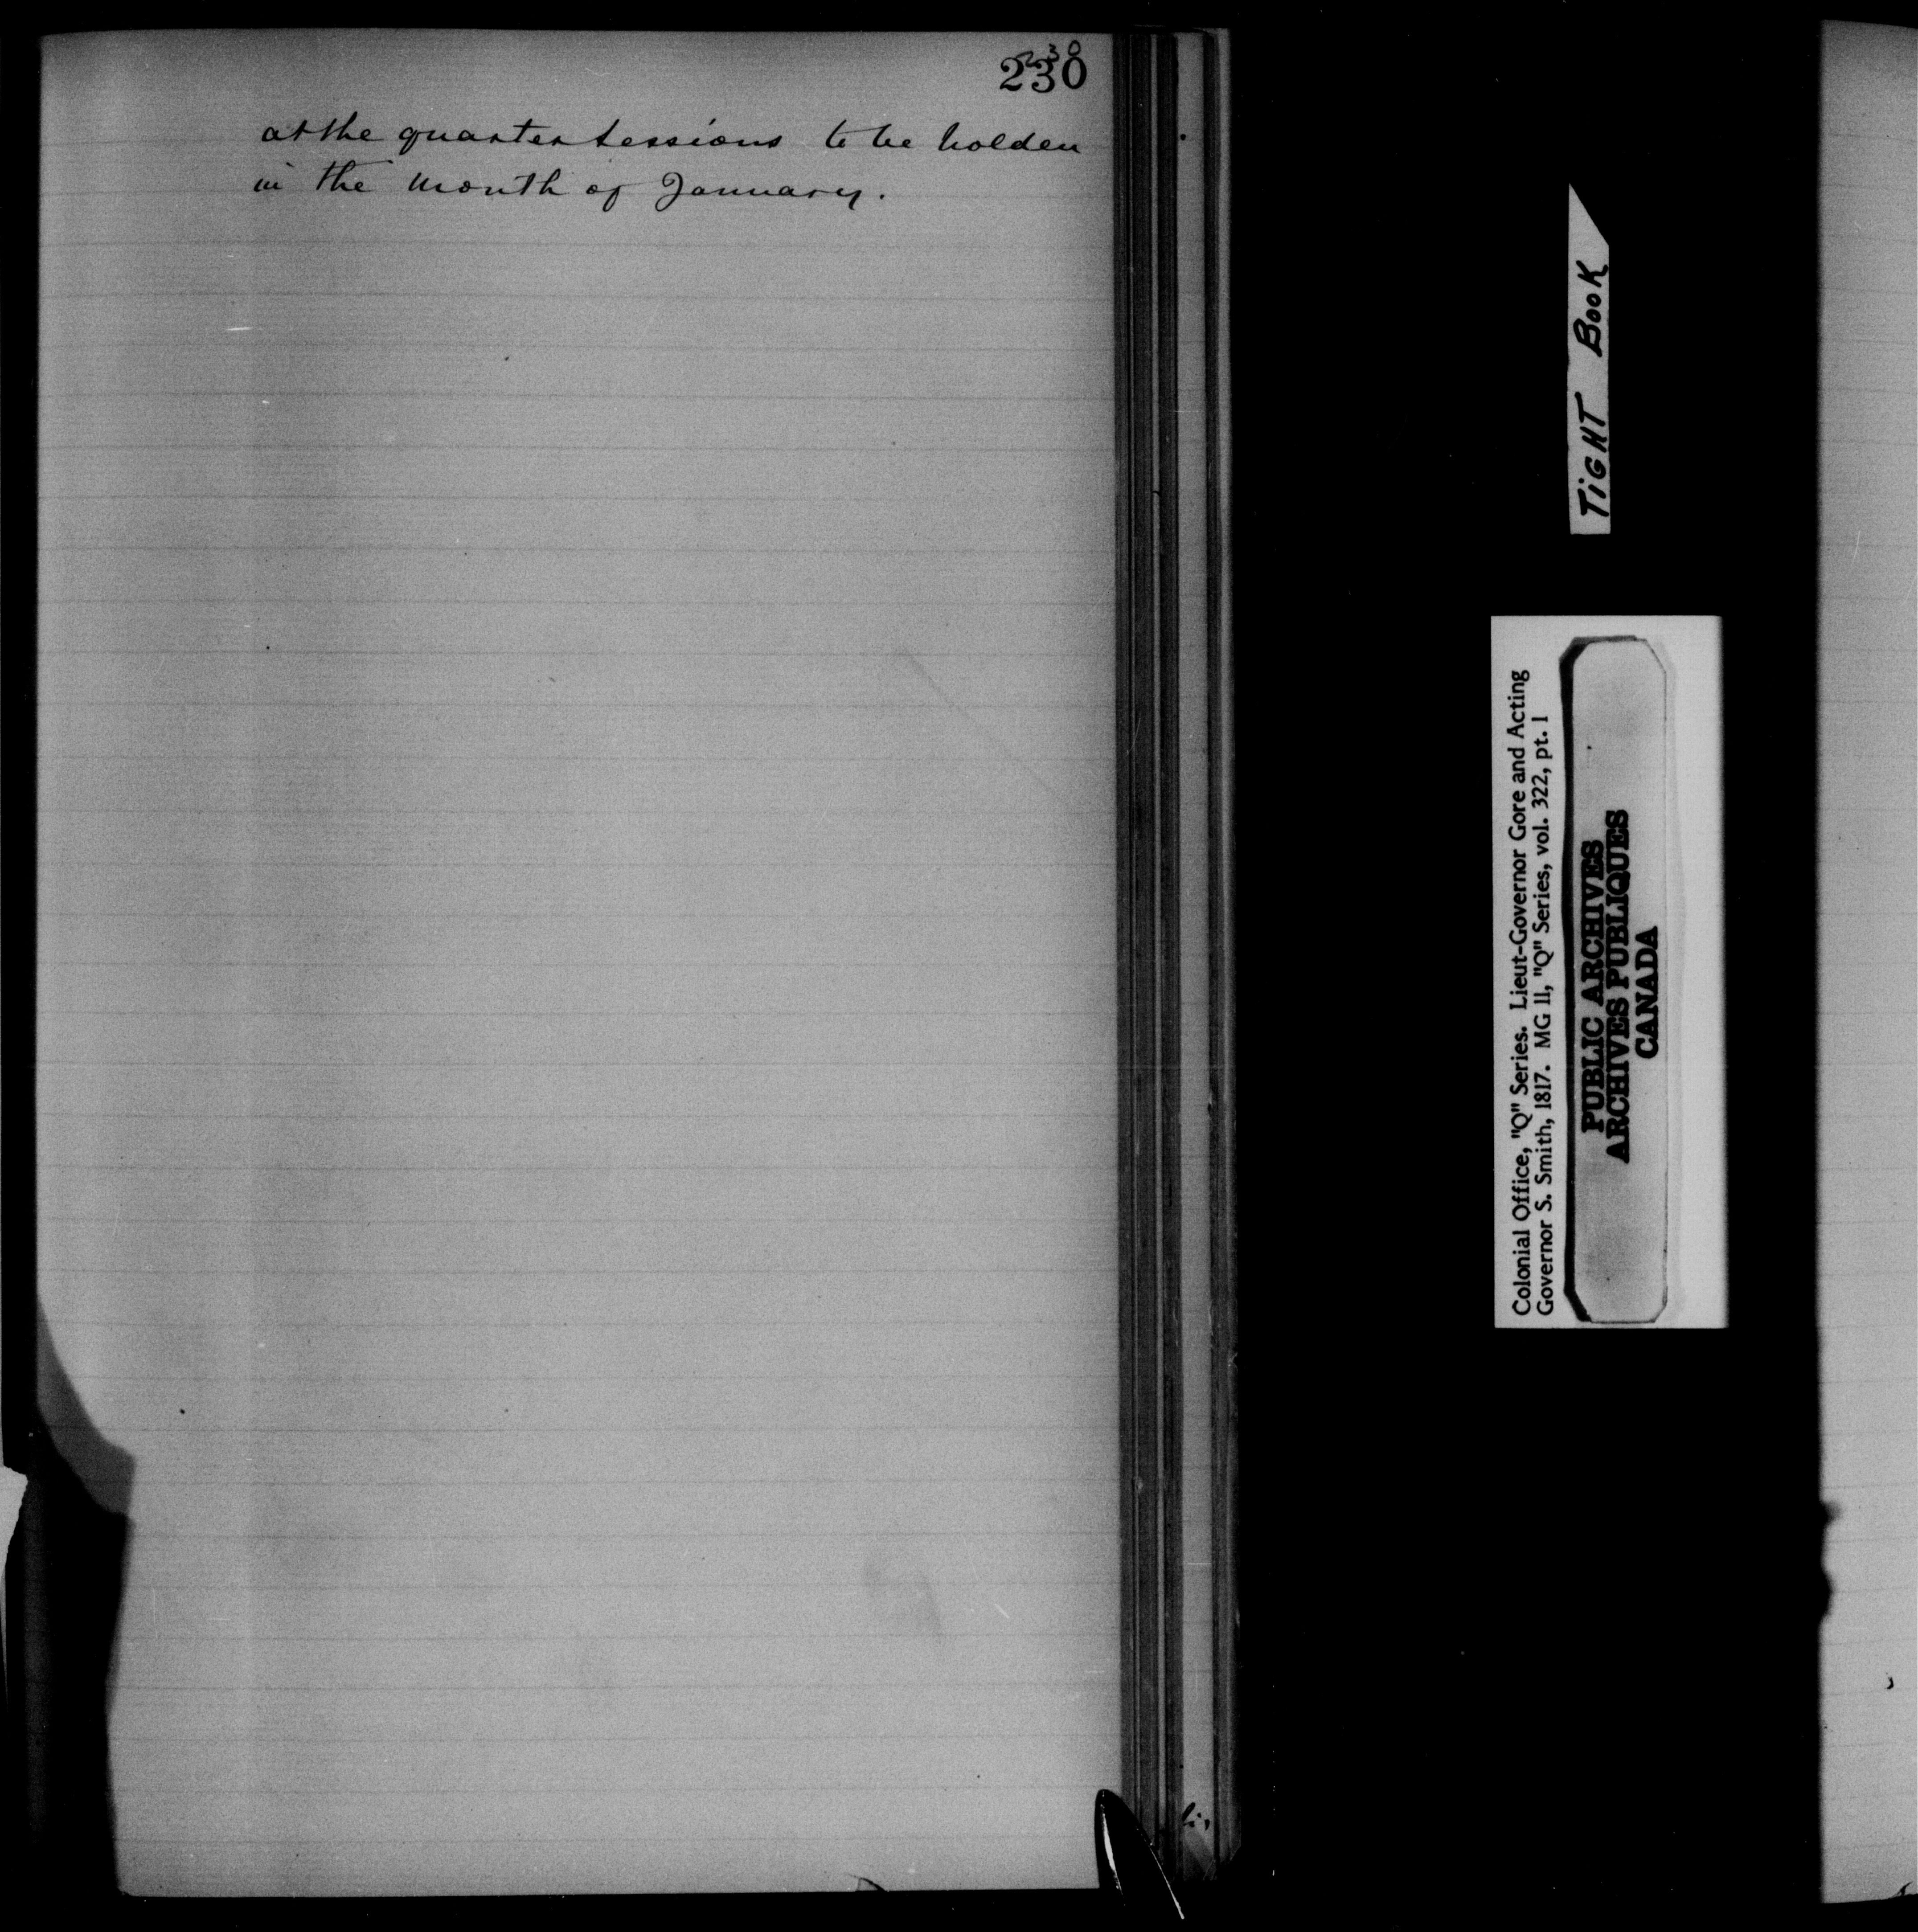 230
230
at the quarter sessions to be holden
in the month of January.
TIGHT BOOK
Colonial Office, "Q" Series. Lieut-Governor Gore and Acting
Governor S. Smith, 1817. MG 11, "Q" Series, vol. 322, pt. 1
PUBLIC ARCHIVES
ARCHIVES PUBLIQUES
CANADA